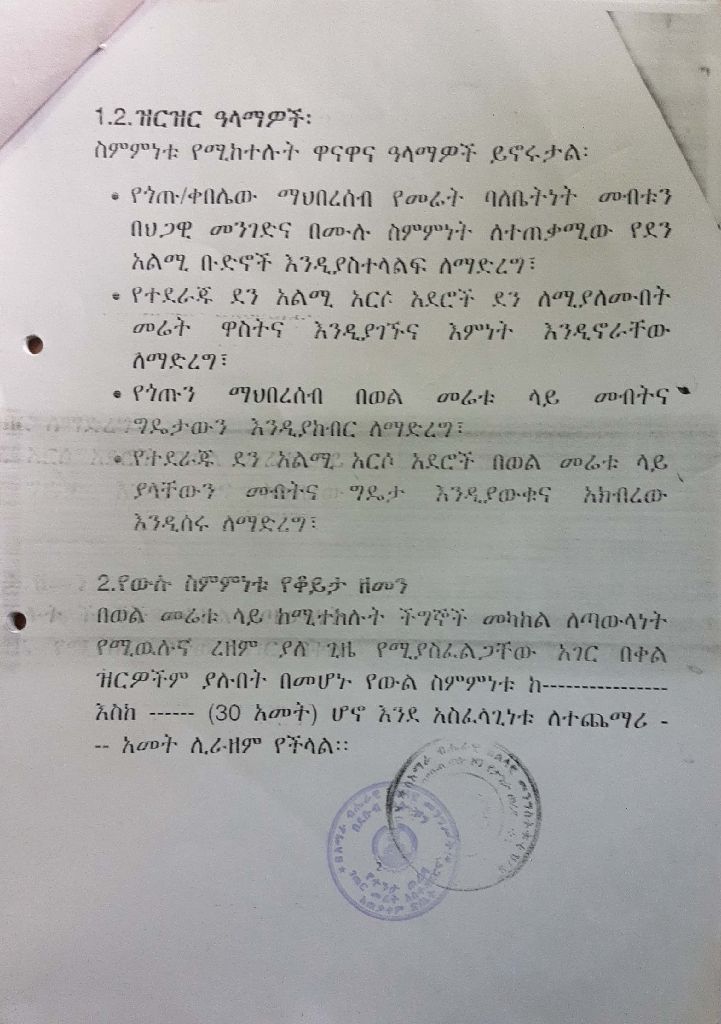 1.2.ዝርዝር ዓላማዎች፡
ስምምነቱ የሚከተሉት ዋናዋና ዓላማዎች ይኖሩታል፡
• የጎጡ/ቀበሌው ማህበረሰብ የመሬት ባለቤትነት መብቱን
በህጋዊ መንገድና በሙሉ ስምምነት ለተጠቃሚው የደን
አልሚ ቡድኖች እንዲያስተላልፍ ለማድረግ፤
• የተደራጁ ደን አልሚ አርሶ አደሮች ደን ለሚያለሙበት
መሬት ዋስትና እንዲያገኙና እምነት እንዲኖራቸው
ለማድረግ፤
• የጎጡን ማህበረሰብ በወል መሬቱ ላይ መብትና
ግዴታውን እንዲያከብር ለማድረግ፤
• የተደራጁ ደን አልሚ አርሶ አደሮች በወል መሬቱ ላይ
ያላቸውን መብትና ግዴታ እንዲያውቁና አክብረው
እንዲሰሩ ለማድረግ፤
2.የውሉ ስምምነቱ የቆይታ ዘመን
በወል መሬቱ ላይ ከሚተከሉት ችግኞች መካከል ለጣውላነት
የሚዉሉና ረዘም ያለ ጊዜ የሚያስፈልጋቸው አገር በቀል
ዝርዎችም ያሉበት በመሆኑ የውል ስምምነቱ ከ-----------------
እስከ ------ (30 አመት) ሆኖ እንደ አስፈላጊነቱ ለተጨማሪ -
-- አመት ሊራዘም የችላል፡፡
2